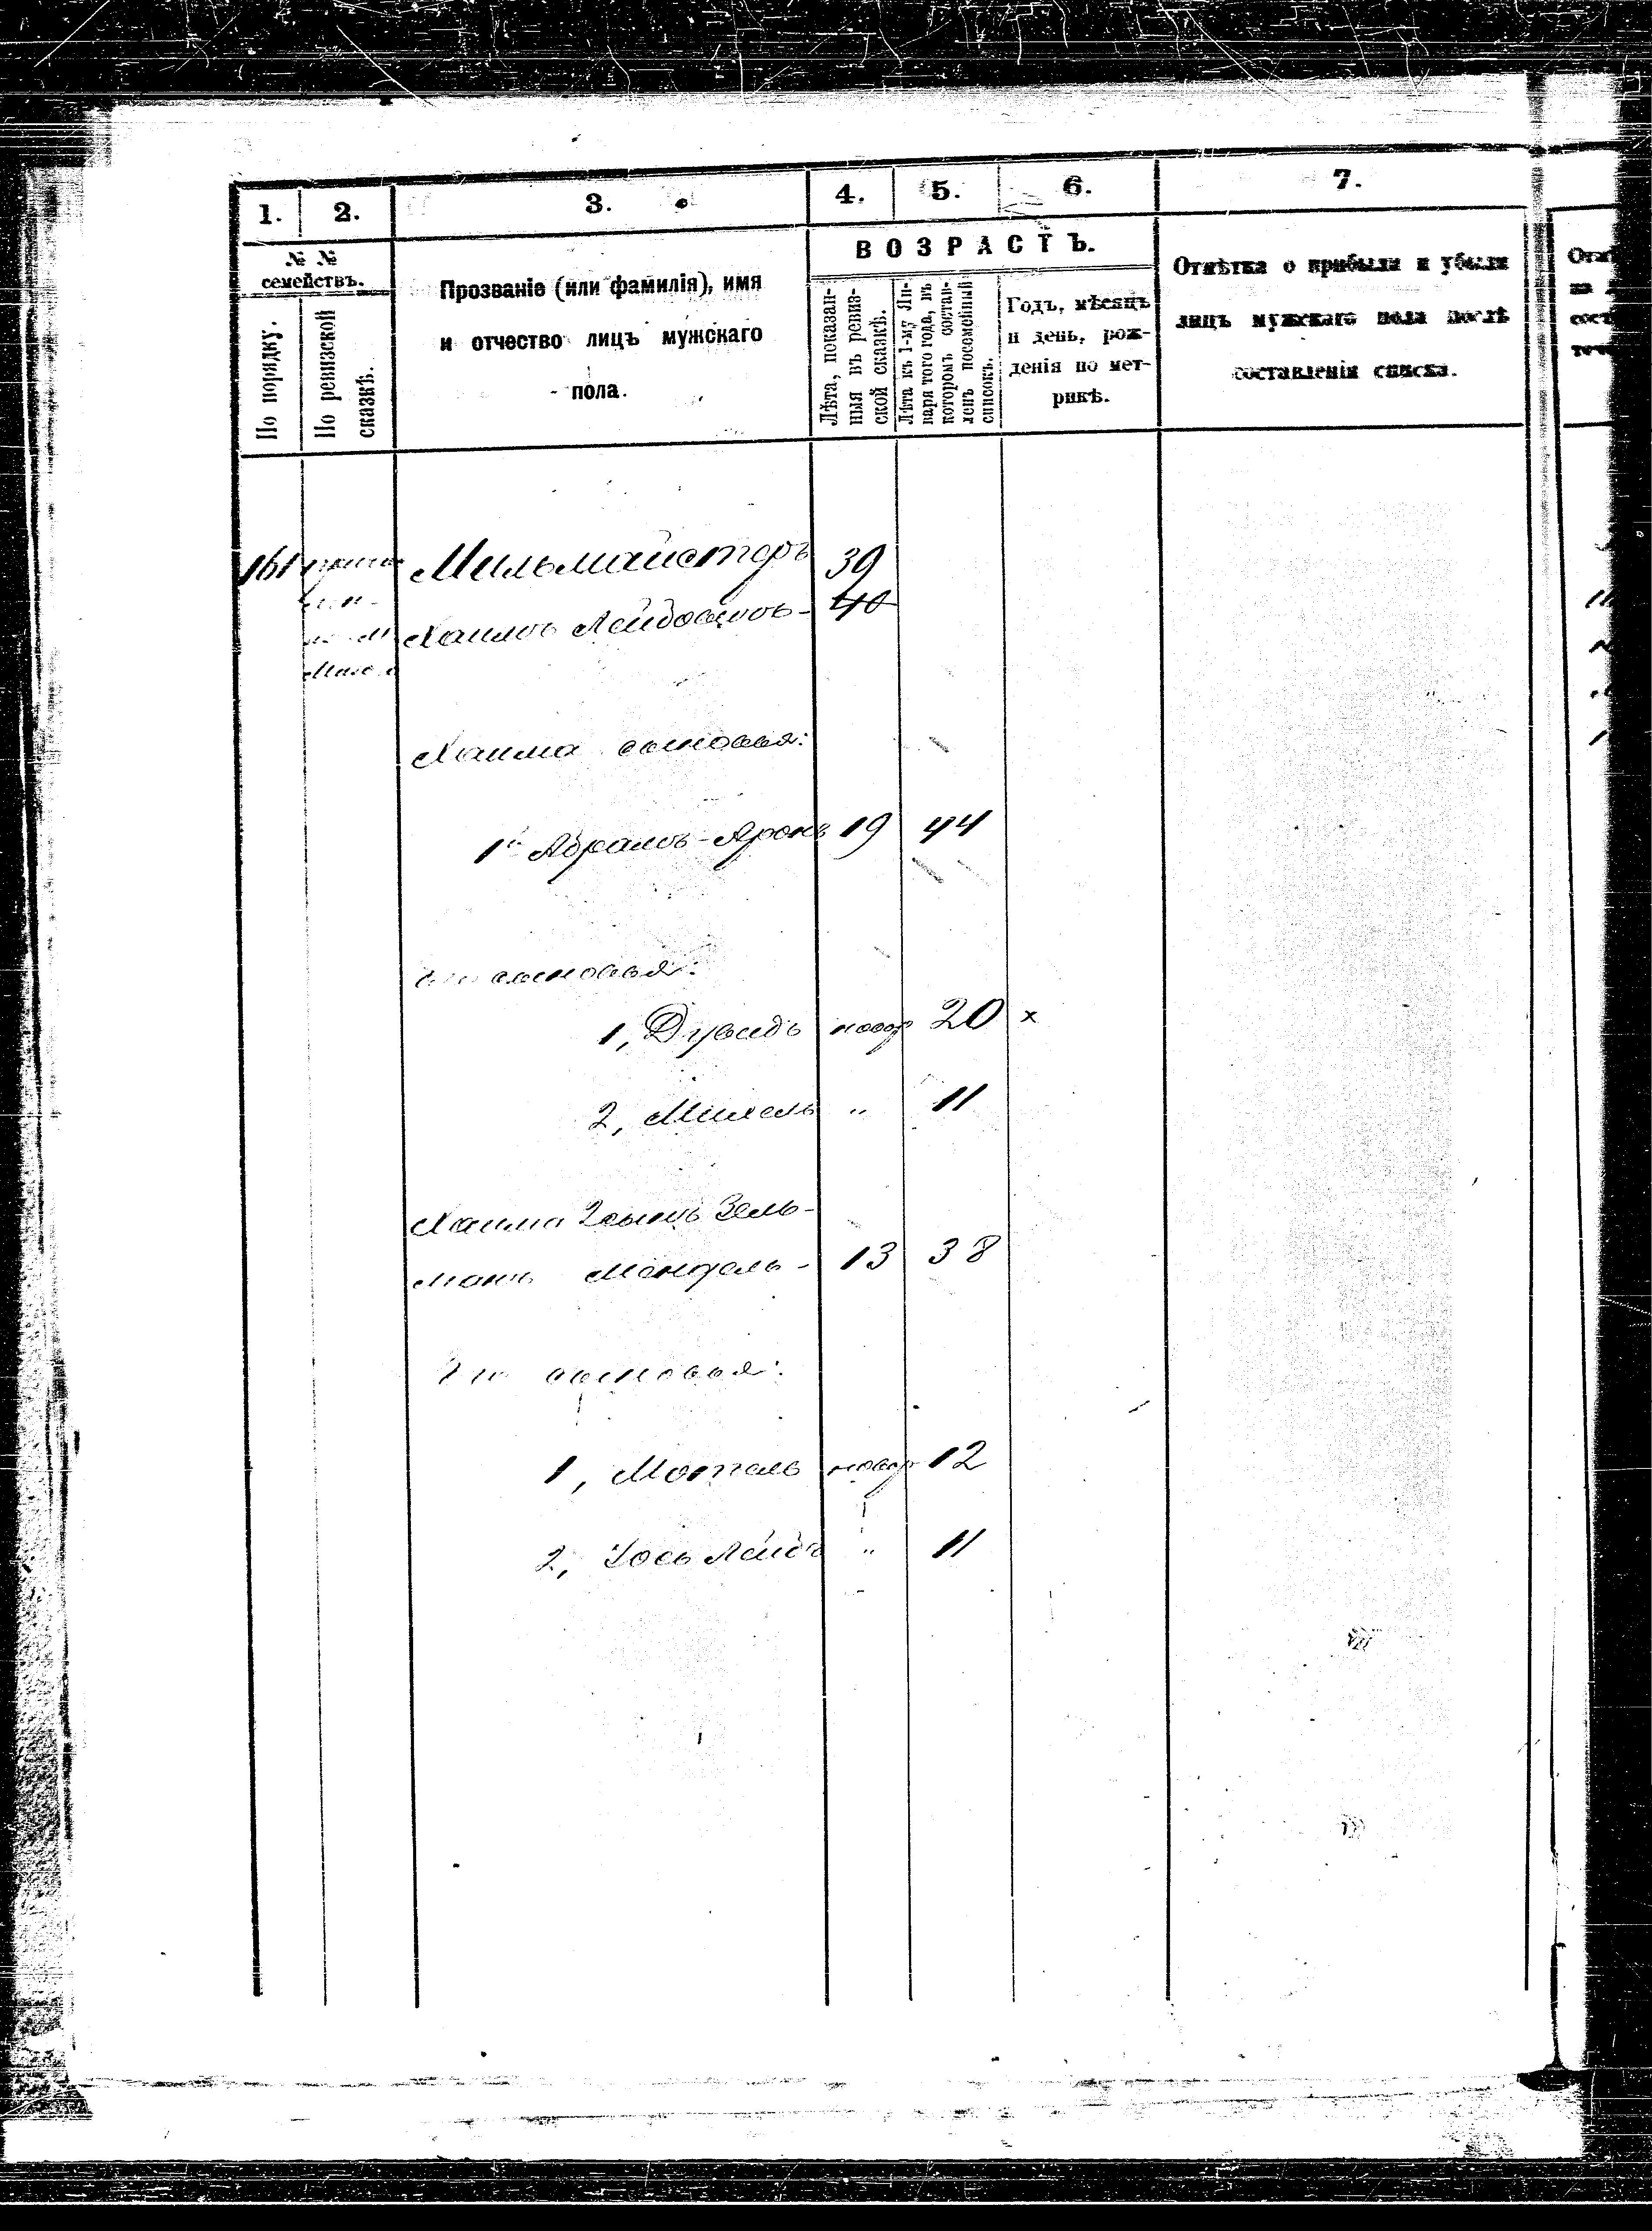 1. 2. 3. 4. 5. 6. 7.
№ № семействъ.
По порядку.
По ревизской сказкѣ.
Прозваніе (или фамилія), имя
и отчество лицъ мужскаго
пола.
ВОЗРАСТЪ.
Лѣта, показан-
ныя въ ревиз-
ской сказкѣ.
Лѣта къ 1-му Ян-
варя того года, въ
которомъ состав-
ленъ посемейный
списокъ.
Годъ, мѣсяцъ
и день, рож-
денія по мет-
рикѣ.
Отмѣтка о прибыли и убыли
лицъ мужскаго пола послѣ
составленія списка.
161 Мильмайстеръ 39
Хаимъ Лейбовъ - 40
Хаима сыновья:
1й Абрамъ-Аронъ 19 44
его сыновья:
1, Дувидъ новор 20 x
2, Михель " 11
Хаима 2 сынъ Зель-
манъ Мендель - 13 38
Его сыновья:
1, Мотель новор 12
2, Іось Лейбъ " 11